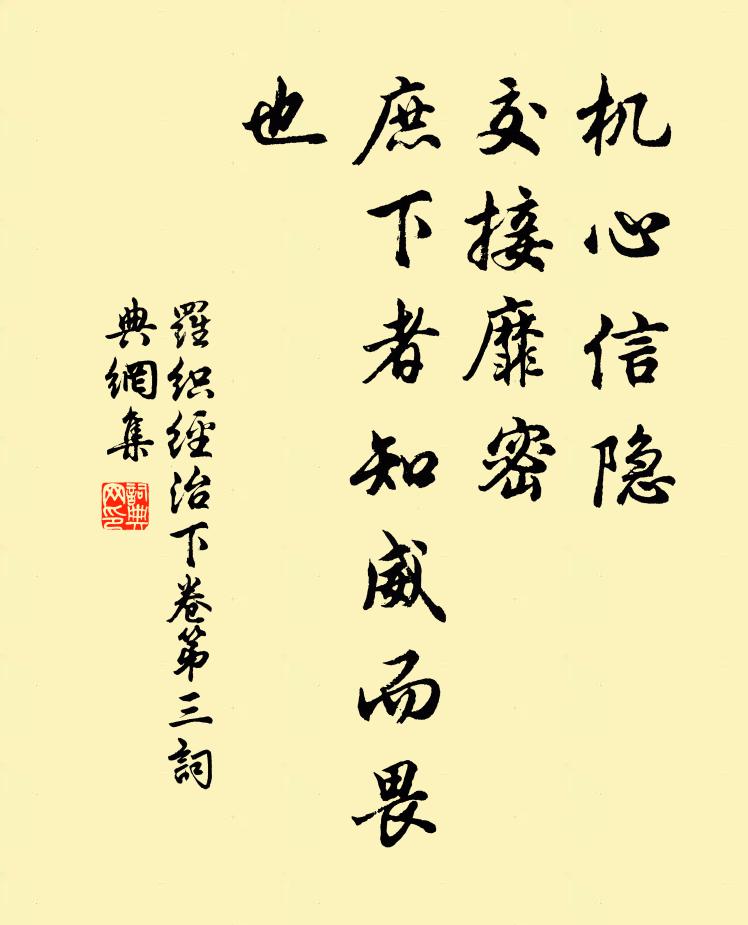 机心信隐
交接靡密
庶下者知威而畏
也
羅织經治下卷第三詞
典網集
詞典网印